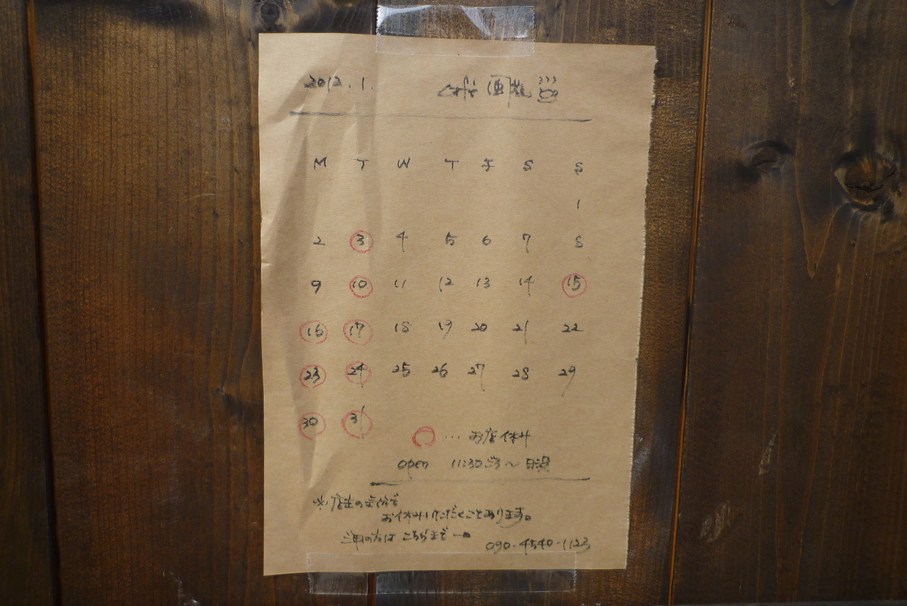 2012.1.
M T W T F S S
1
2 3 4 5 6 7 8
9 10 11 12 13 14 15
16 17 18 19 20 21 22
23 24 25 26 27 28 29
30 31
… お店休み
open 11:30ごろ〜日没
※店主の
お休みいただくことあります。
ご用の方は こちらまで→
090-4540-1123